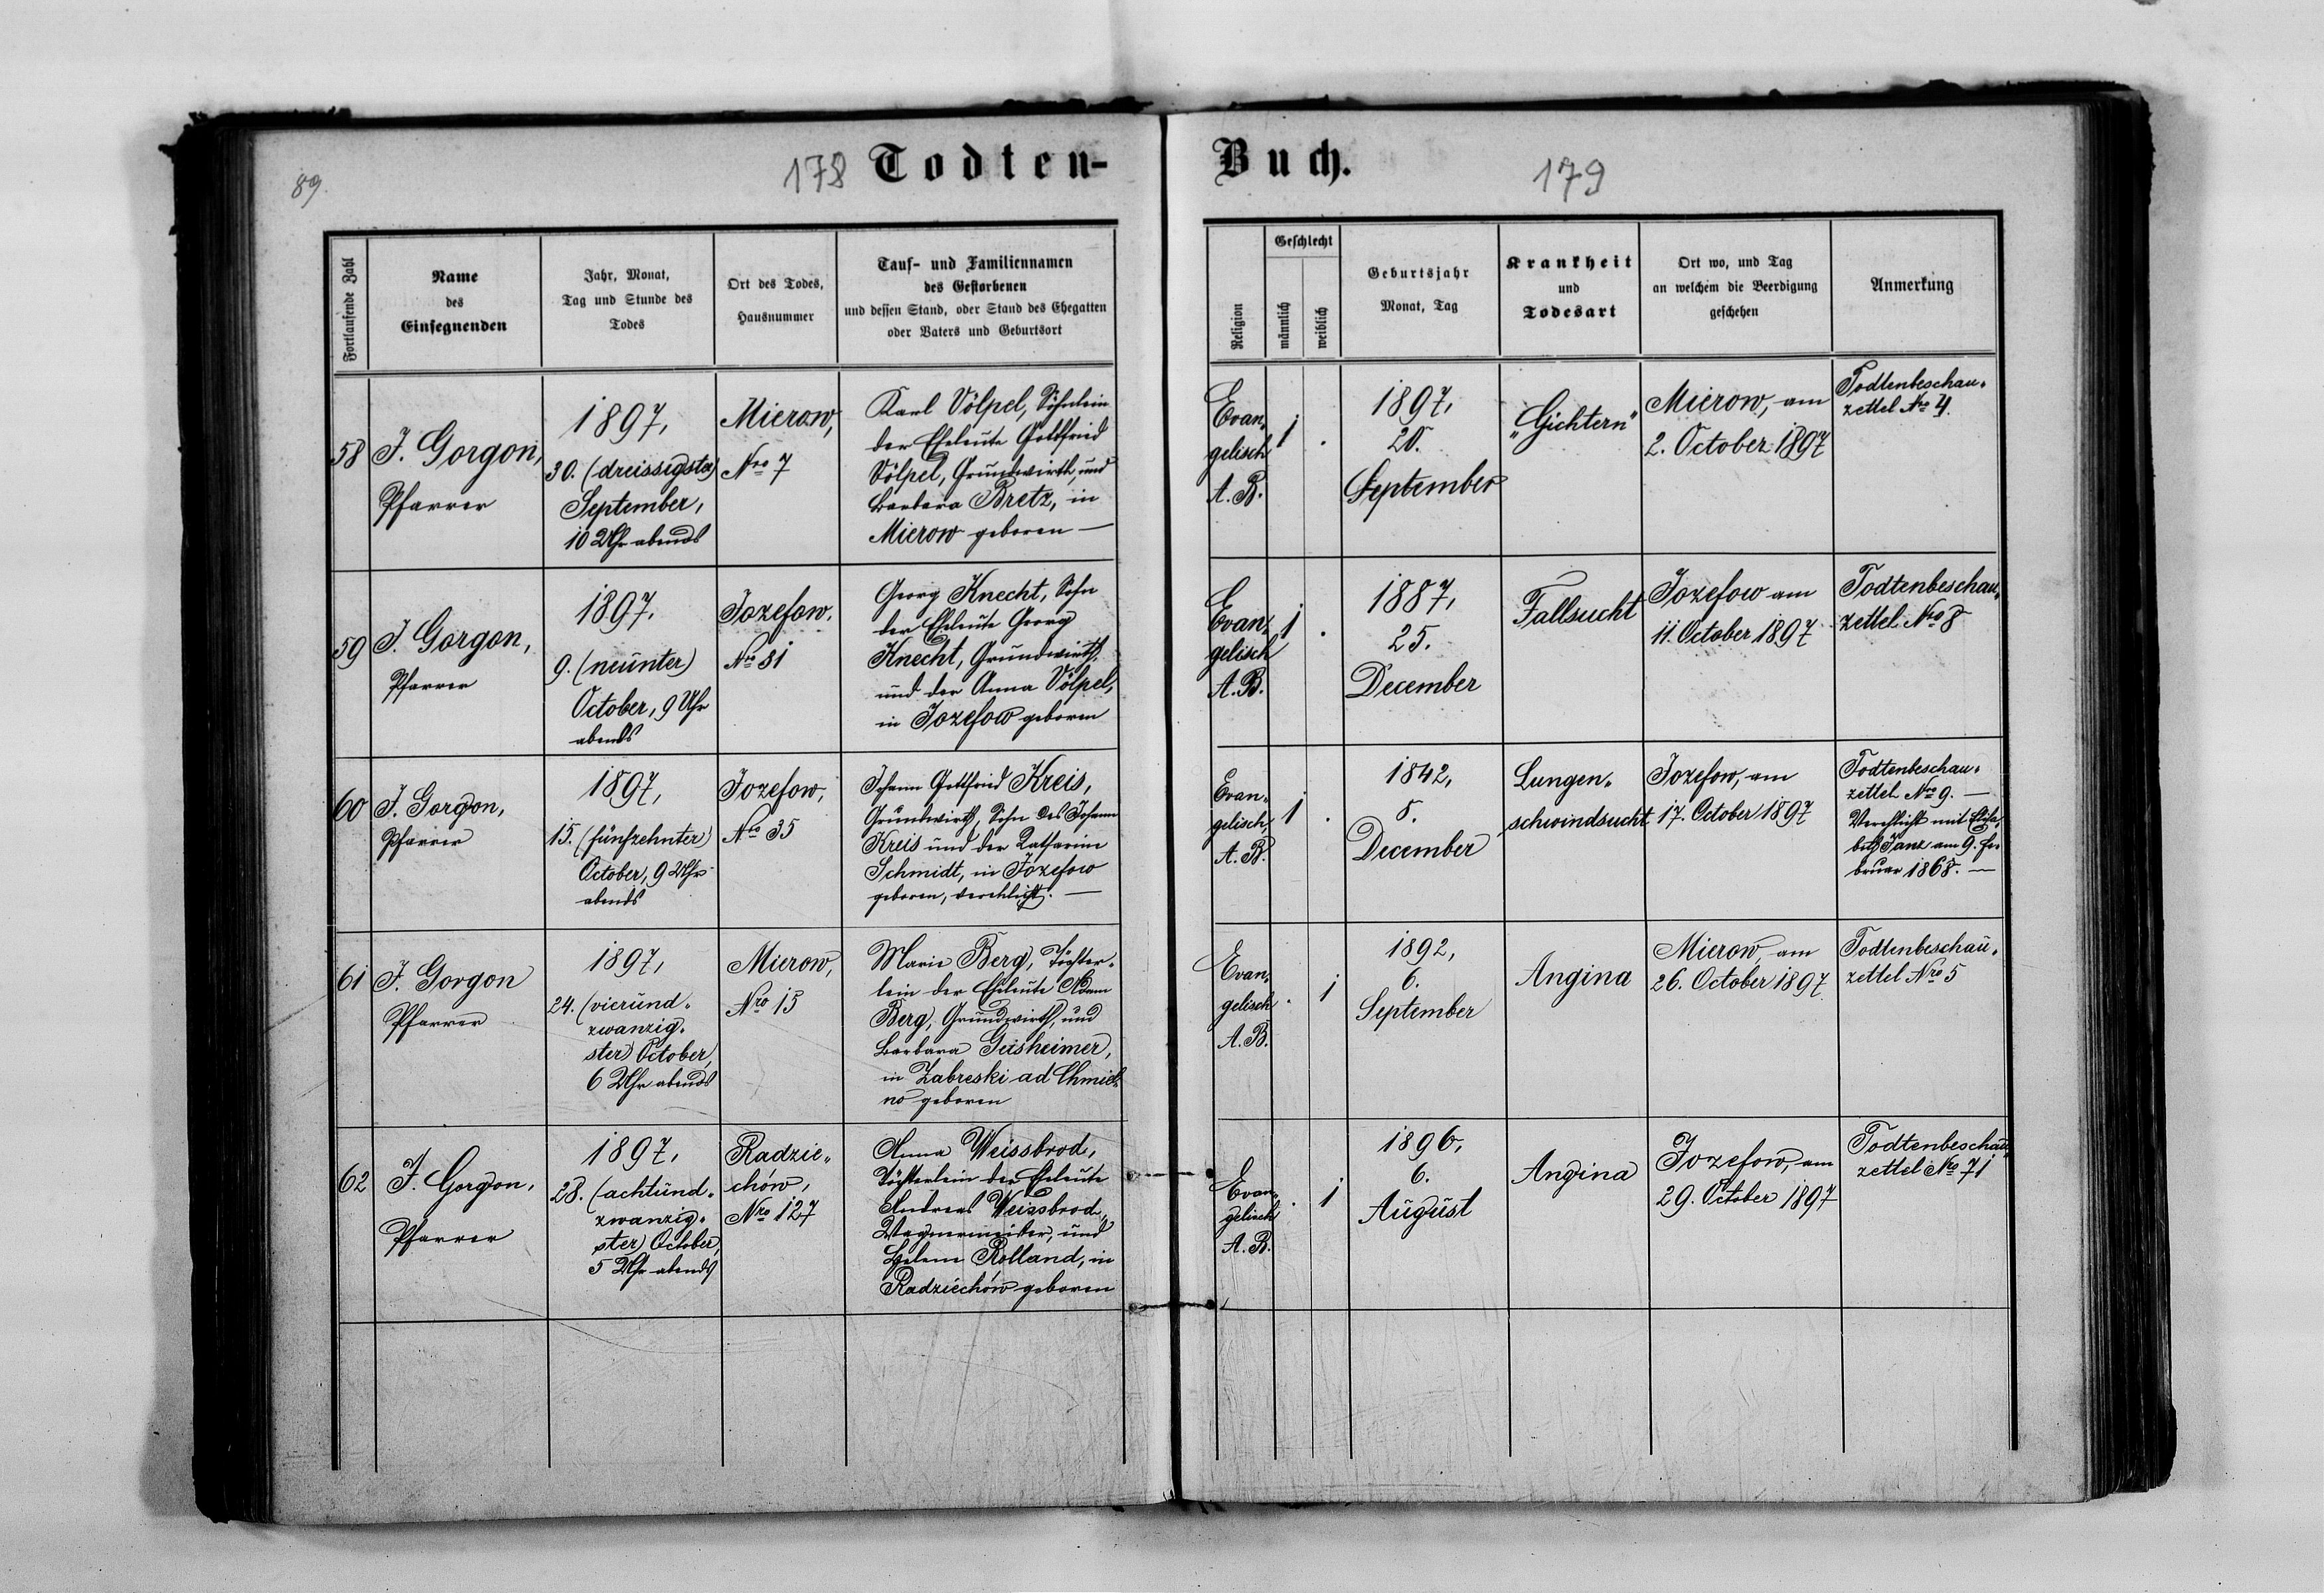 89.
178 Todten-
Buch. 179
Fortlaufende Zahl
Name
des
Einsegnenden
Jahr, Monat,
Tag und Stunde des
Todes
Ort des Todes,
Hausnummer
Tauf- und Familiennamen
des Gestorbenen
und dessen Stand, oder Stand des Ehegatten
oder Vaters und Geburtsort
Religion
Geschlecht
männlich
weiblich
Geburtsjahr
Monat, Tag
Krankheit
und
Todesart
Ort wo, und Tag
an welchem die Beerdigung
geschehen
Anmerkung
58
J. Gorgon,
Pfarrer
1897,
30. (dreissigster)
September,
10 Uhr abends
Mierow,
Nro 7
Karl Völpel, Söhnlein
der Eheleute Gottfried
Völpel, Grundwirth, und
Barbara Bretz, in
Mierow geboren —
Evan-
gelisch
A. B.
1
.
1897,
20.
September
„Gichtern"
Mierow, am
2. October 1897
Todtenbeschau-
zettel Nro 4.
59
J. Gorgon,
Pfarrer
1897.
9. (neunter)
October, 9 Uhr
abends
Jozefow.
Nro 81
Georg Knecht, Sohn
der Eheleute Georg
Knecht, Grundwirth,
und der Anna Völpel,
in Jozefow geboren
Evan-
gelisch
A. B.
1
.
1887,
25.
December
Fallsucht
Jozefow am
11. October 1897
Todtenbeschau-
zettel Nro 8
60
J. Gorgon,
Pfarrer
1897,
15. (fünfzehnter)
October, 9 Uhr
abends
Jozefow,
Nro 35
Johann Gottfried Kreis,
Grundwirth, Sohn des Johann
Kreis und der Katharine
Schmidt, in Jozefow
geboren, verehlicht. —
Evan-
gelisch
A. B.
1
.
1842,
8.
December
Lungen-
schwindsucht
Jozefow, am
17. October 1897
Todtenbeschau-
zettel Nro 9. —
Verehlicht mit Elisa-
beth Janz am 9. Fe-
bruar 1868. —
61
J. Gorgon
Pfarrer
1897,
24. (vierund-
zwanzig-
ster) October,
6 Uhr abends
Mierow,
Nro 15
Marie Berg, Töchter-
lein der Eheleute Adam
Berg, Grundwirth, und
Barbara Geisheimer,
in Zabreski ad Chmiel-
no geboren
Evan-
gelisch
A. B.
.
1
1892,
6.
September
Angina
Mierow, am
26. October 1897
Todtenbeschau-
zettel Nro 5
62
J. Gorgon,
Pfarrer
1897,
28. (achtund-
zwanzig-
ster) October,
5 Uhr abends
Radzie-
chów,
Nro 127
Anna Weissbrod,
Töchterlein der Eheleute
Andreas Weissbrod,
Wagnermeister, und
Helene Rolland, in
Radziechów geboren
Evan-
gelisch
A. B.
.
1
1896,
6.
August
Angina
Jozefow, am
29. October 1897
Todtenbeschau-
zettel Nro 71